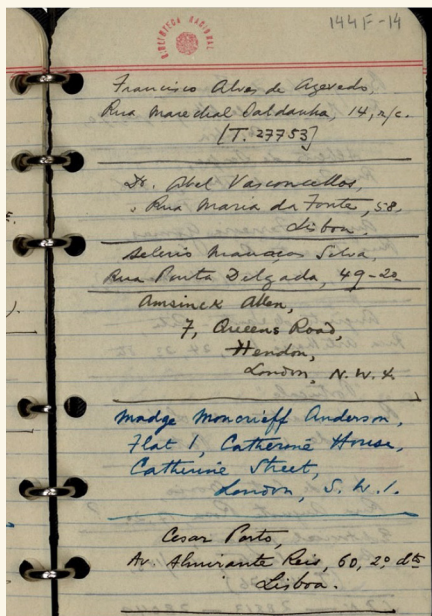 144F-14
BIBLIOTECA NACIONAL
Francisco Alves de Azevedo,
Rua Marechal Saldanha, 14, r/c.
[T. 27753]
Dr. Abel Vasconcellos,
Rua Maria da Fonte, 58.
Lisboa.
Silva.
Rua Ponta Delgada, 49-2º
Amsinck Allen,
7, Queens Road,
Hendon,
London, N.W.4.
Madge Moncrieff Anderson,
Flat 1, Catherine House,
Catherine Street,
London, S.W.1.
Cesar Porto,
Av. Almirante Reis, 60, 2º dto
Lisboa.